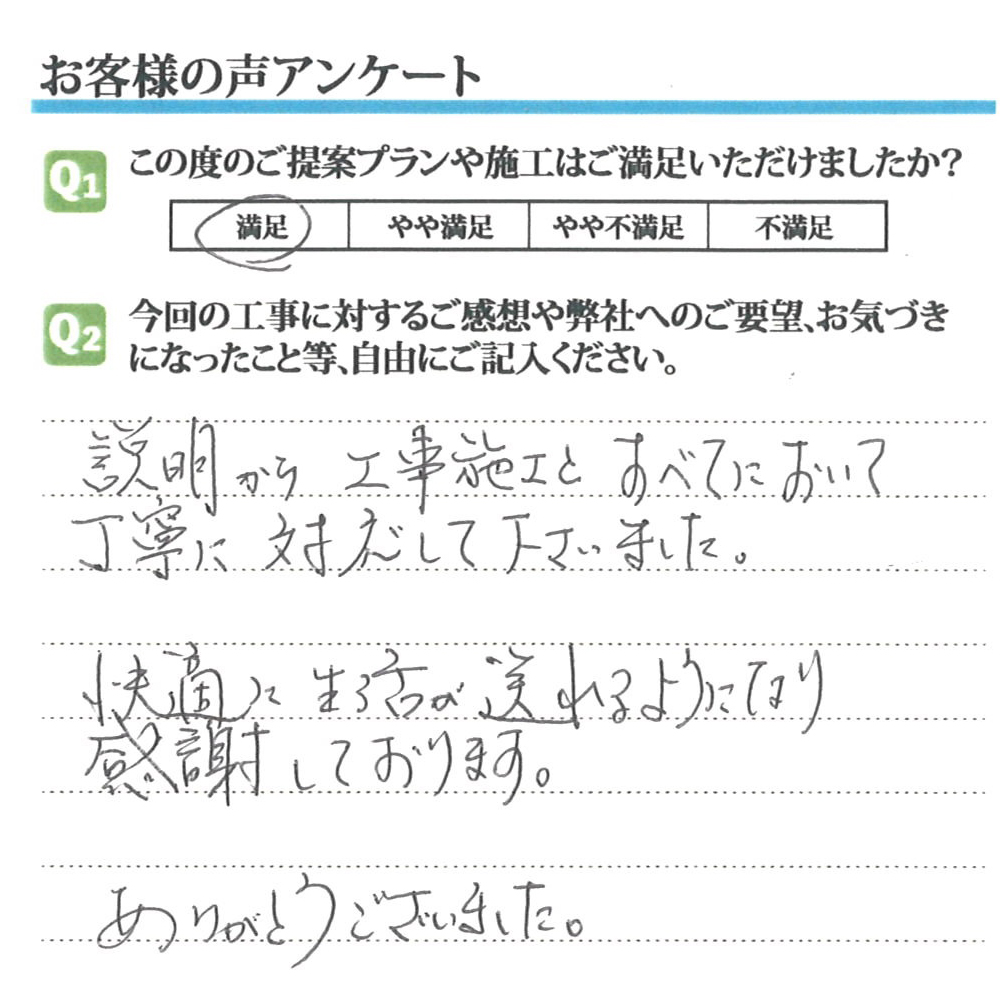 お客様の声アンケート
Q1 この度のご提案プランや施工はご満足いただけましたか?
満足 やや満足 やや不満足 不満足
Q2 今回の工事に対するご感想や弊社へのご要望、お気づき
になったこと等、自由にご記入ください。
説明から 工事施工と すべてにおいて
丁寧に 対応して下さいました。
快適に 生活が 送れるようになり
感謝しております。
ありがとうございました。